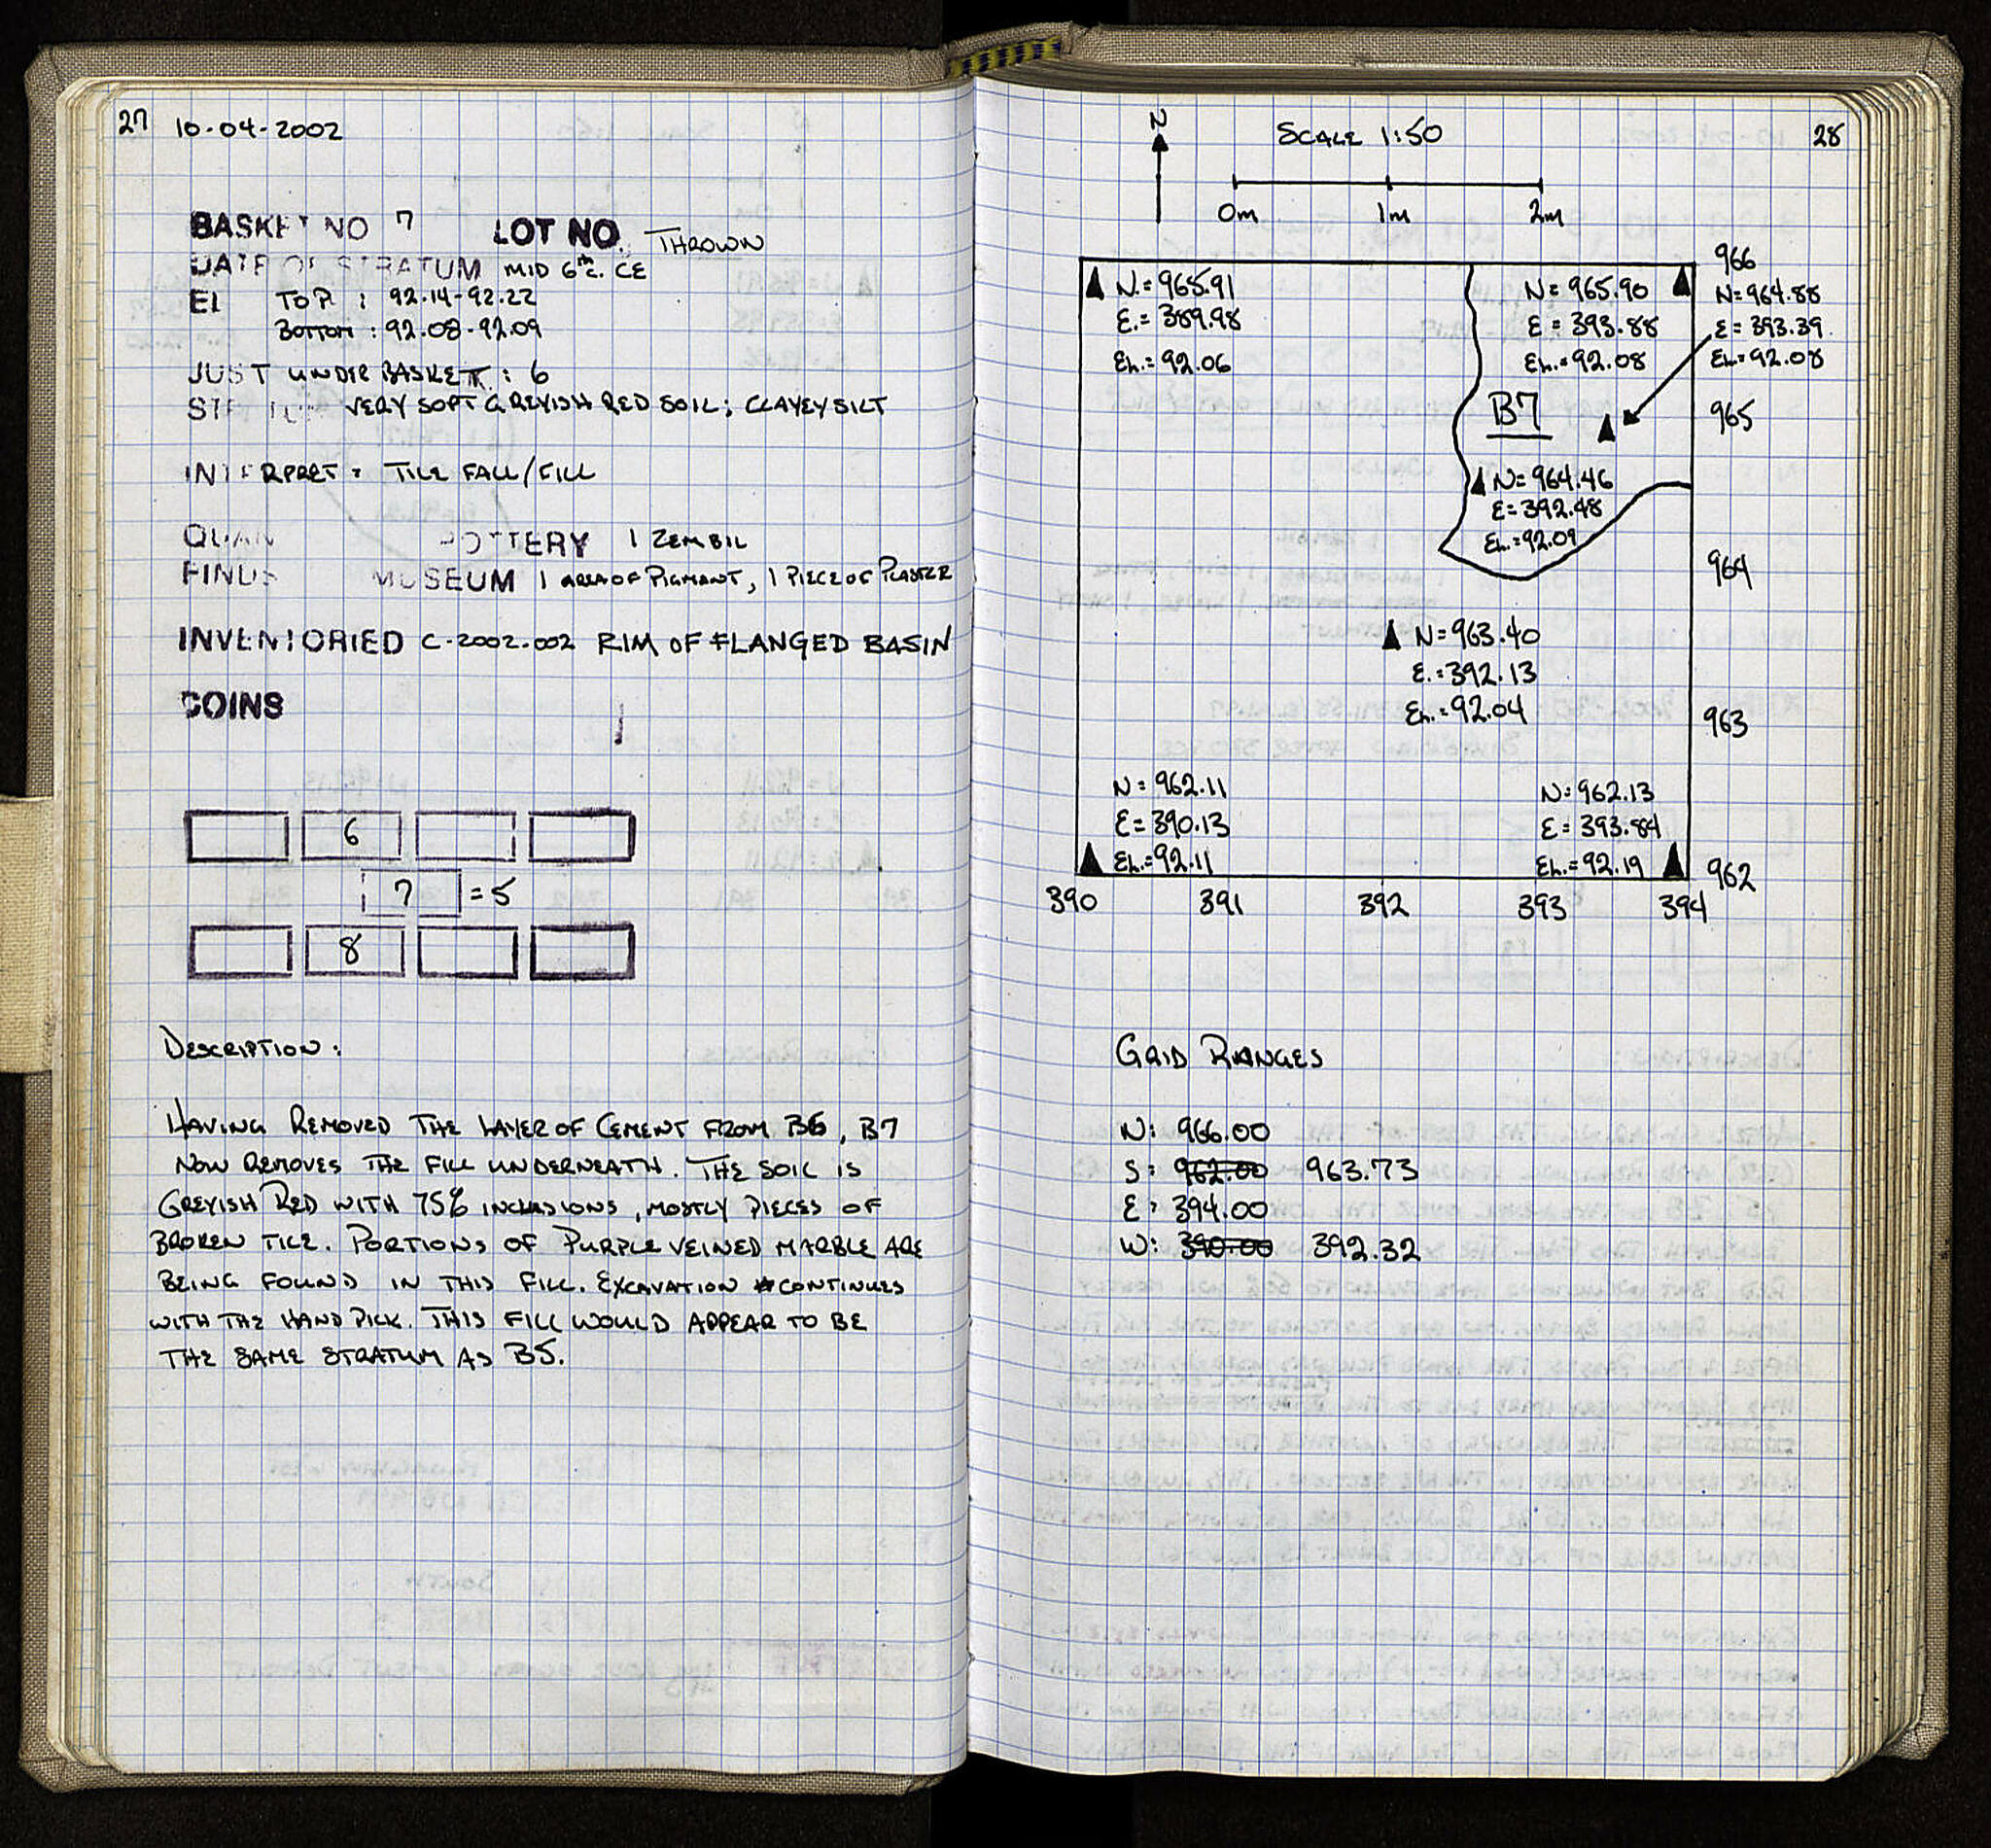 27 10-04-2002
BASKET NO 7 LOT NO. THROWN
DATE OF STRATUM MID 6th c. CE
El TOP : 92.14-92.22
BOTTOM : 92.08-92.09
JUST UNDER BASKET : 6
VERY SOFT GREYISH RED SOIL; CLAYEY SILT
INTERPRET : TILE FALL/FILL
QUAN POTTERY 1 ZEMBIL
FINDS MUSEUM 1 AREA OF PIGMANT, 1 PIECE OF PLASTER
INVENTORIED C-2002.002 RIM OF FLANGED BASIN
COINS
6
7 = 5
8
DESCRIPTION:
HAVING REMOVED THE LAYER OF CEMENT FROM B6, B7
NOW REMOVES THE FILL UNDERNEATH. THE SOIL IS
GREYISH RED WITH 75% INCLUSIONS, MOSTLY PIECES OF
BROKEN TILE. PORTIONS OF PURPLE VEINED MARBLE ARE
BEING FOUND IN THIS FILL. EXCAVATION CONTINUES
WITH THE HAND PICK. THIS FILL WOULD APPEAR TO BE
THE SAME STRATUM AS B5.
N SCALE 1:50 28
0m 1m 2m
N.=965.91
E.=389.98
EL.=92.06
N=965.90
E=393.88
EL.=92.08
966
N=964.88
E=393.39
EL=92.08
B7
965
N=964.46
E=392.48
EL.=92.09
964
N=963.40
E.=392.13
EL.=92.04
963
N=962.11
E=390.13
EL.=92.11
N=962.13
E=393.84
EL.=92.19
962
390 391 392 393 394
GRID RANGES
N: 966.00
S: 962.00 963.73
E: 394.00
W: 390.00 392.32